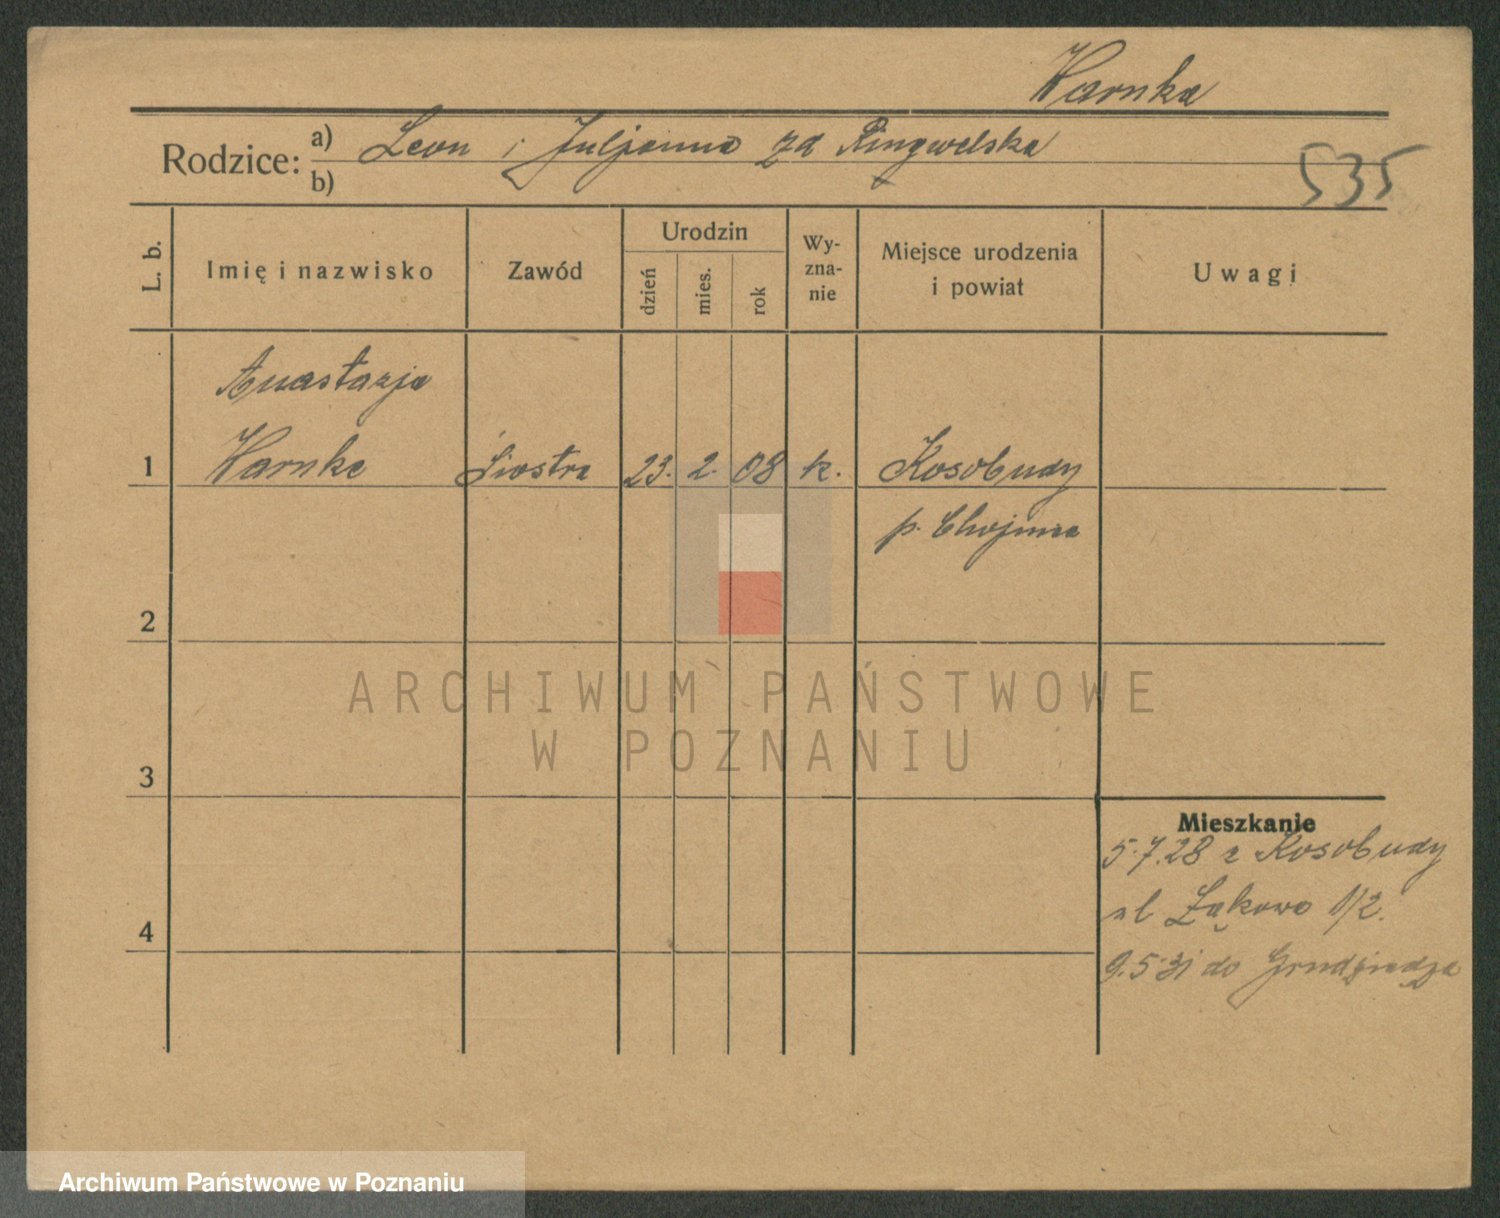 Warnka
Rodzice: a) Leon i Juljanna zd Ringwelska
b)
535
L. b. Imię i nazwisko Zawód Urodzin dzień mies. rok Wy-zna-nie Miejsce urodzenia i powiat Uwagi
Anastazja
1 Warnke Siostra 23. 2. 08 k. Kosobudy
p. Chojnice
2
ARCHIWUM PAŃSTWOWE
W POZNANIU
3
Mieszkanie
5.7.28 z Kosobudy
ul Łąkowa 1/2.
4
9.5.31 do Grudziądza
Archiwum Państwowe w Poznaniu